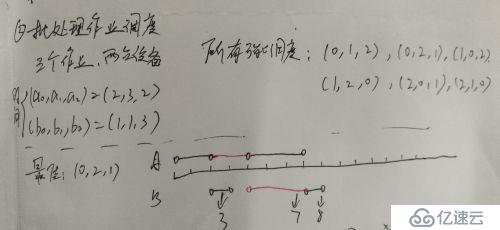 曰批处理作业调度
三个作业，两台设备
所有可能调度：(0,1,2),(0,2,1),(1,0,2)
(1,2,0),(2,0,1),(2,1,0)
时间
(a₀,a₁,a₂)=(2,3,2)
(b₀,b₁,b₂)=(1,1,3)
最佳：(0,2,1)
A
B
3 7 8
亿速云